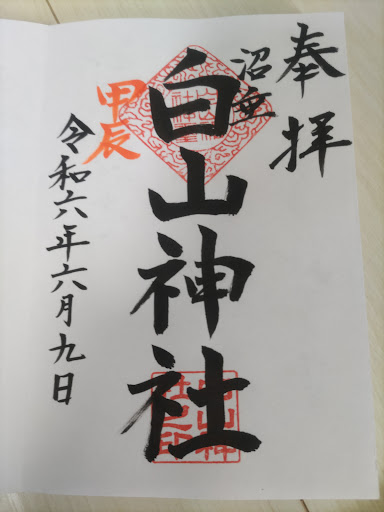 奉拝
沼垂
白山神社
甲辰
令和六年六月九日